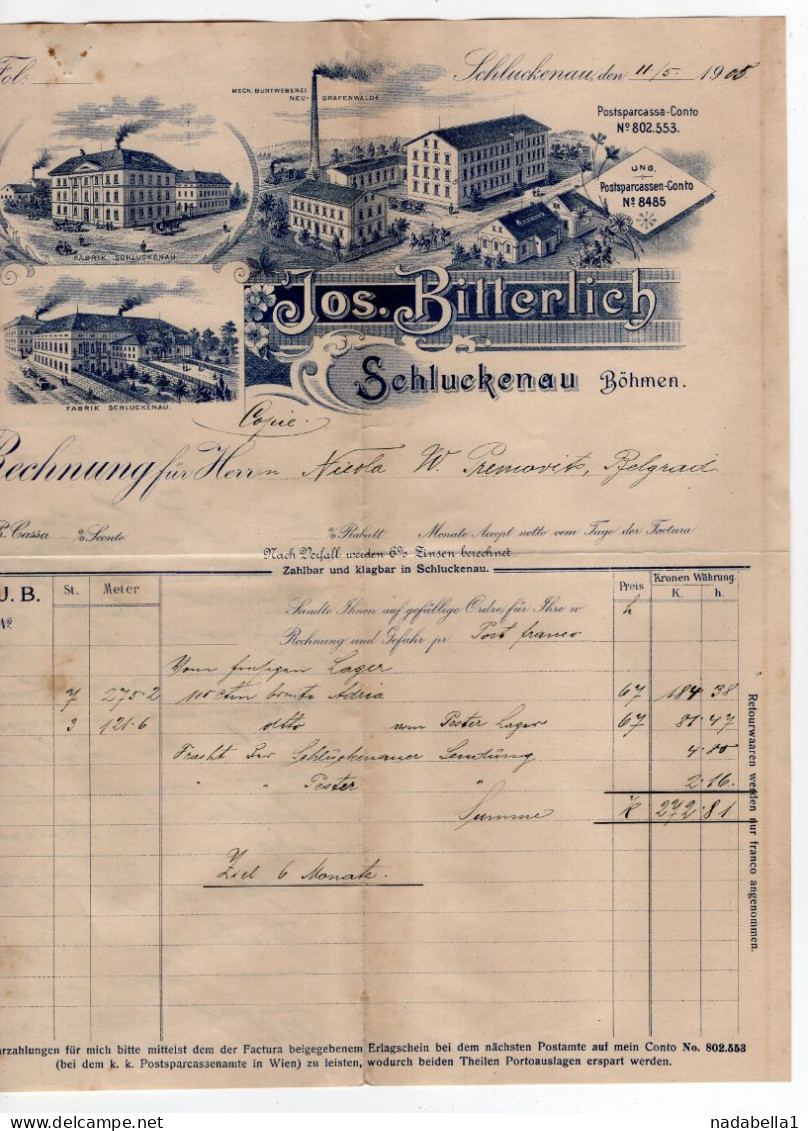 Fol:
Schluckenau, den 11/5. 1905.
MECH. BUNTWEBEREI
NEU-GRAFENWALDE
Postsparcassa-Conto
Nº 802.553.
UNG.
Postsparcassen-Conto
Nº 8485
FABRIK SCHLUCKENAU.
Jos. Bitterlich
Schluckenau Böhmen.
FABRIK SCHLUCKENAU.
Copie.
Rechnung für Herrn Nicola W. Premovits, Belgrad
Cassa % Sconto % Rabatt Monate Accept netto vom Tage der Factura
Nach Verfall werden 6% Zinsen berechnet
Zahlbar und klagbar in Schluckenau.
J. B. St. Meter Preis Kronen Währung
Nº K. h.
Sandte Ihnen auf gefällige Ordre für Ihre w
Rechnung und Gefahr pr Post franco
Vom hiesigen Lager
7 275·2 Adria 67 184 38
3 121·6 detto vom Pester Lager 67 81·47
Fracht der Schluckenauer Sendung 4·80
" " Pester " 2·16.
Summe K 272·81
Ziel 6 Monate.
Retourwaaren werden nur franco angenommen.
arzahlungen für mich bitte mittelst dem der Factura beigegebenem Erlagschein bei dem nächsten Postamte auf mein Conto No. 802.553
(bei dem k. k. Postsparcassenamte in Wien) zu leisten, wodurch beiden Theilen Portoauslagen erspart werden.
nadabella1